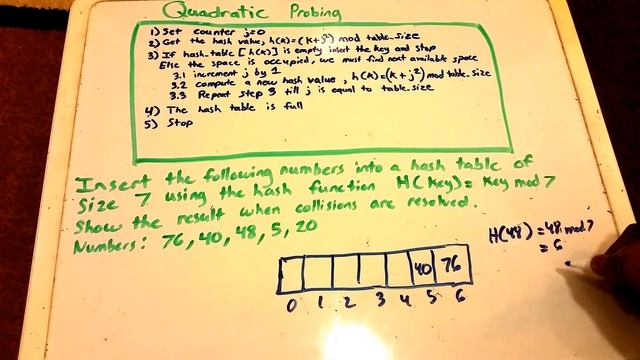 Quadratic Probing
1) Set counter j=0
2) Get the hash value, h(k)=(k+j²) mod table_size
3) If hash-table [h(k)] is empty insert the key and stop
Else the space is occupied, we must find next available space
3.1 increment j by 1
3.2 compute a new hash value, h(k)=(k+j²) mod table_size
3.3 Repeat step 3 till j is equal to table_size
4) The hash table is full
5) Stop
Insert the following numbers into a hash table of
Size 7 using the hash function H(key)= Key mod 7
Show the result when collisions are resolved.
Numbers: 76, 40, 48, 5, 20
H(48) = 48 mod 7
= 6
40 76
0 1 2 3 4 5 6